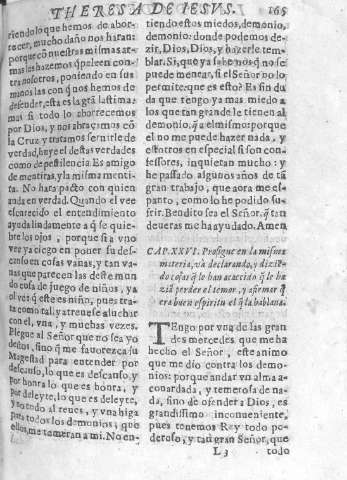 THERESA DE IESVS. 165
riendo lo que hemos de abor-
recer, mucho daño nos haran:
porque cõ nuestras mismas ar-
mas les hazemos q̃ peleen con-
tra nosotros, poniendo en sus
manos las con q̃ nos hemos de
defender, esta es la grã lastima:
mas si todo lo aborrecemos
por Dios, y nos abraçamos cõ
la Cruz y tratamos seruirle de
verdad, huye el destas verdades
como de pestilencia. Es amigo
de mentiras, y la misma menti-
ra. No hara pacto con quien
anda en verdad. Quando el vee
escurecido el entendimiento
ayuda lindamente a q̃ se quie-
bre los ojos, porque si a vno
vee ya ciego en poner su des-
canso en cosas vanas, y tan va-
nas que parecen las deste mun
do cosa de juego de niños, ya
el vee q̃ este es niño, pues tra-
ta como tal, y atreuese a luchar
con el, vna, y muchas vezes.
Plegue al Señor que no sea yo
destos, sino q̃ me fauorezca su
Magestad para entender por
descanso, lo que es descanso, y
por honra lo que es honra, y
por deleyte, lo que es deleyte,
y no todo al reues, y vna higa
para todos los demonios; que
ellos me temeran a mi. No en-
tiendo estos miedos, demonio,
demonio: donde podemos de-
zir, Dios, Dios, y hazerle tem-
blar. Si, que ya sabemos q̃ no se
puede menear, si el Señor no lo
permite: que es esto? Es sin du
da que tengo ya mas miedo a
los que tan grande le tienen al
demonio, q̃ a el mismo: porque
el no me puede hazer nada, y
estotros en especial si son con-
fessores, inquietan mucho: y
he passado algunos años de tã
gran trabajo, que aora me es-
panto, como lo he podido su-
frir. Bendito sea el Señor, q̃ tan
deueras me ha ayudado. Amen
CAP. XXVI. Prosigue en la misma
materia, va declarando, y diziẽ-
do cosas q̃ le han acaecido q̃ le ha
ziã perder el temor, y afirmar q̃
era buen espiritu el q̃ la hablaua.
TEngo por vna de las gran
des mercedes que me ha
hecho el Señor, este animo
que me dio contra los demo-
nios: porque andar vn alma a-
couardada, y temerosa de na-
da, sino de ofender a Dios, es
grandissimo inconueniente,
pues tenemos Rey todo po-
deroso, y tan gran Señor, que
L 3 todo